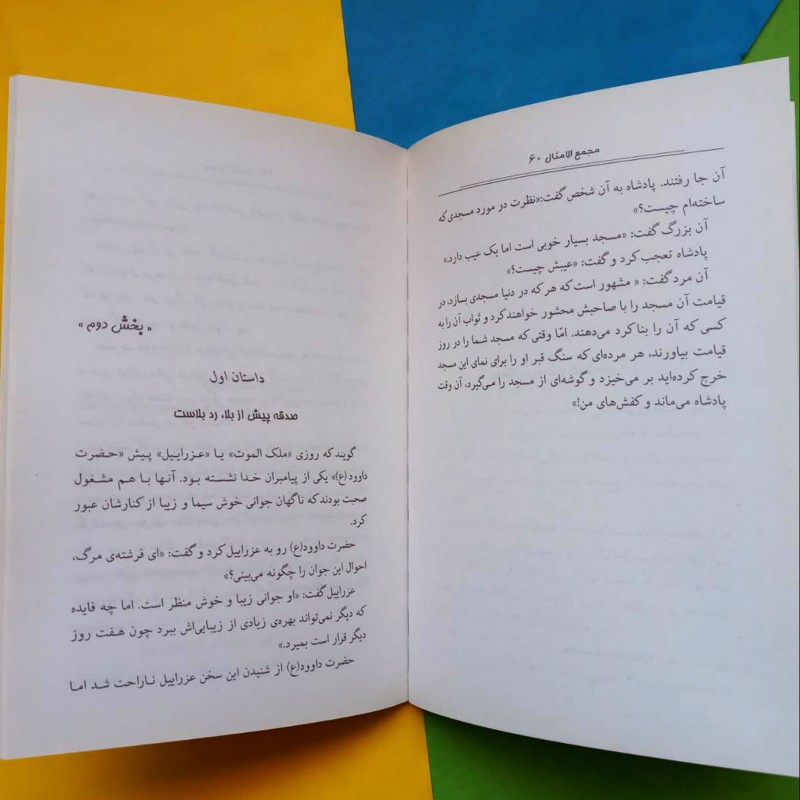 مجمع الامثال ۶۰
آن جا رفتند. پادشاه به آن شخص گفت:«نظرت در مورد مسجدی که
ساخته‌ام چیست؟»
آن بزرگ گفت: «مسجد بسیار خوبی است اما یک عیب دارد.»
پادشاه تعجب کرد و گفت: «عیبش چیست؟»
آن مرد گفت: « مشهور است که هر که در دنیا مسجدی بسازد، در
قیامت آن مسجد را با صاحبش محشور خواهند کرد و ثواب آن را به
کسی که آن را بنا کرد می‌دهند. امّا وقتی که مسجد شما را در روز
قیامت بیاورند، هر مرده‌ای که سنگ قبر او را برای نمای این مسجد
خرج کرده‌اید بر می‌خیزد و گوشه‌ای از مسجد را می‌گیرد، آن وقت
پادشاه می‌ماند و کفش‌های من!»
« بخش دوم »
داستان اول
صدقه پیش از بلا، رد بلاست
گویند که روزی «ملک الموت» یا «عزراییل» پیش «حضرت
داوود (ع)» یکی از پیامبران خدا نشسته بود. آنها با هم مشغول
صحبت بودند که ناگهان جوانی خوش سیما و زیبا از کنارشان عبور
کرد.
حضرت داوود(ع) رو به عزراییل کرد و گفت: «ای فرشته‌ی مرگ،
احوال این جوان را چگونه می‌بینی؟»
عزراییل گفت: «او جوانی زیبا و خوش منظر است. اما چه فایده
که دیگر نمی‌تواند بهره‌ی زیادی از زیبایی‌اش ببرد چون هفت روز
دیگر قرار است بمیرد.»
حضرت داوود(ع) از شنیدن این سخن عزراییل ناراحت شد اما